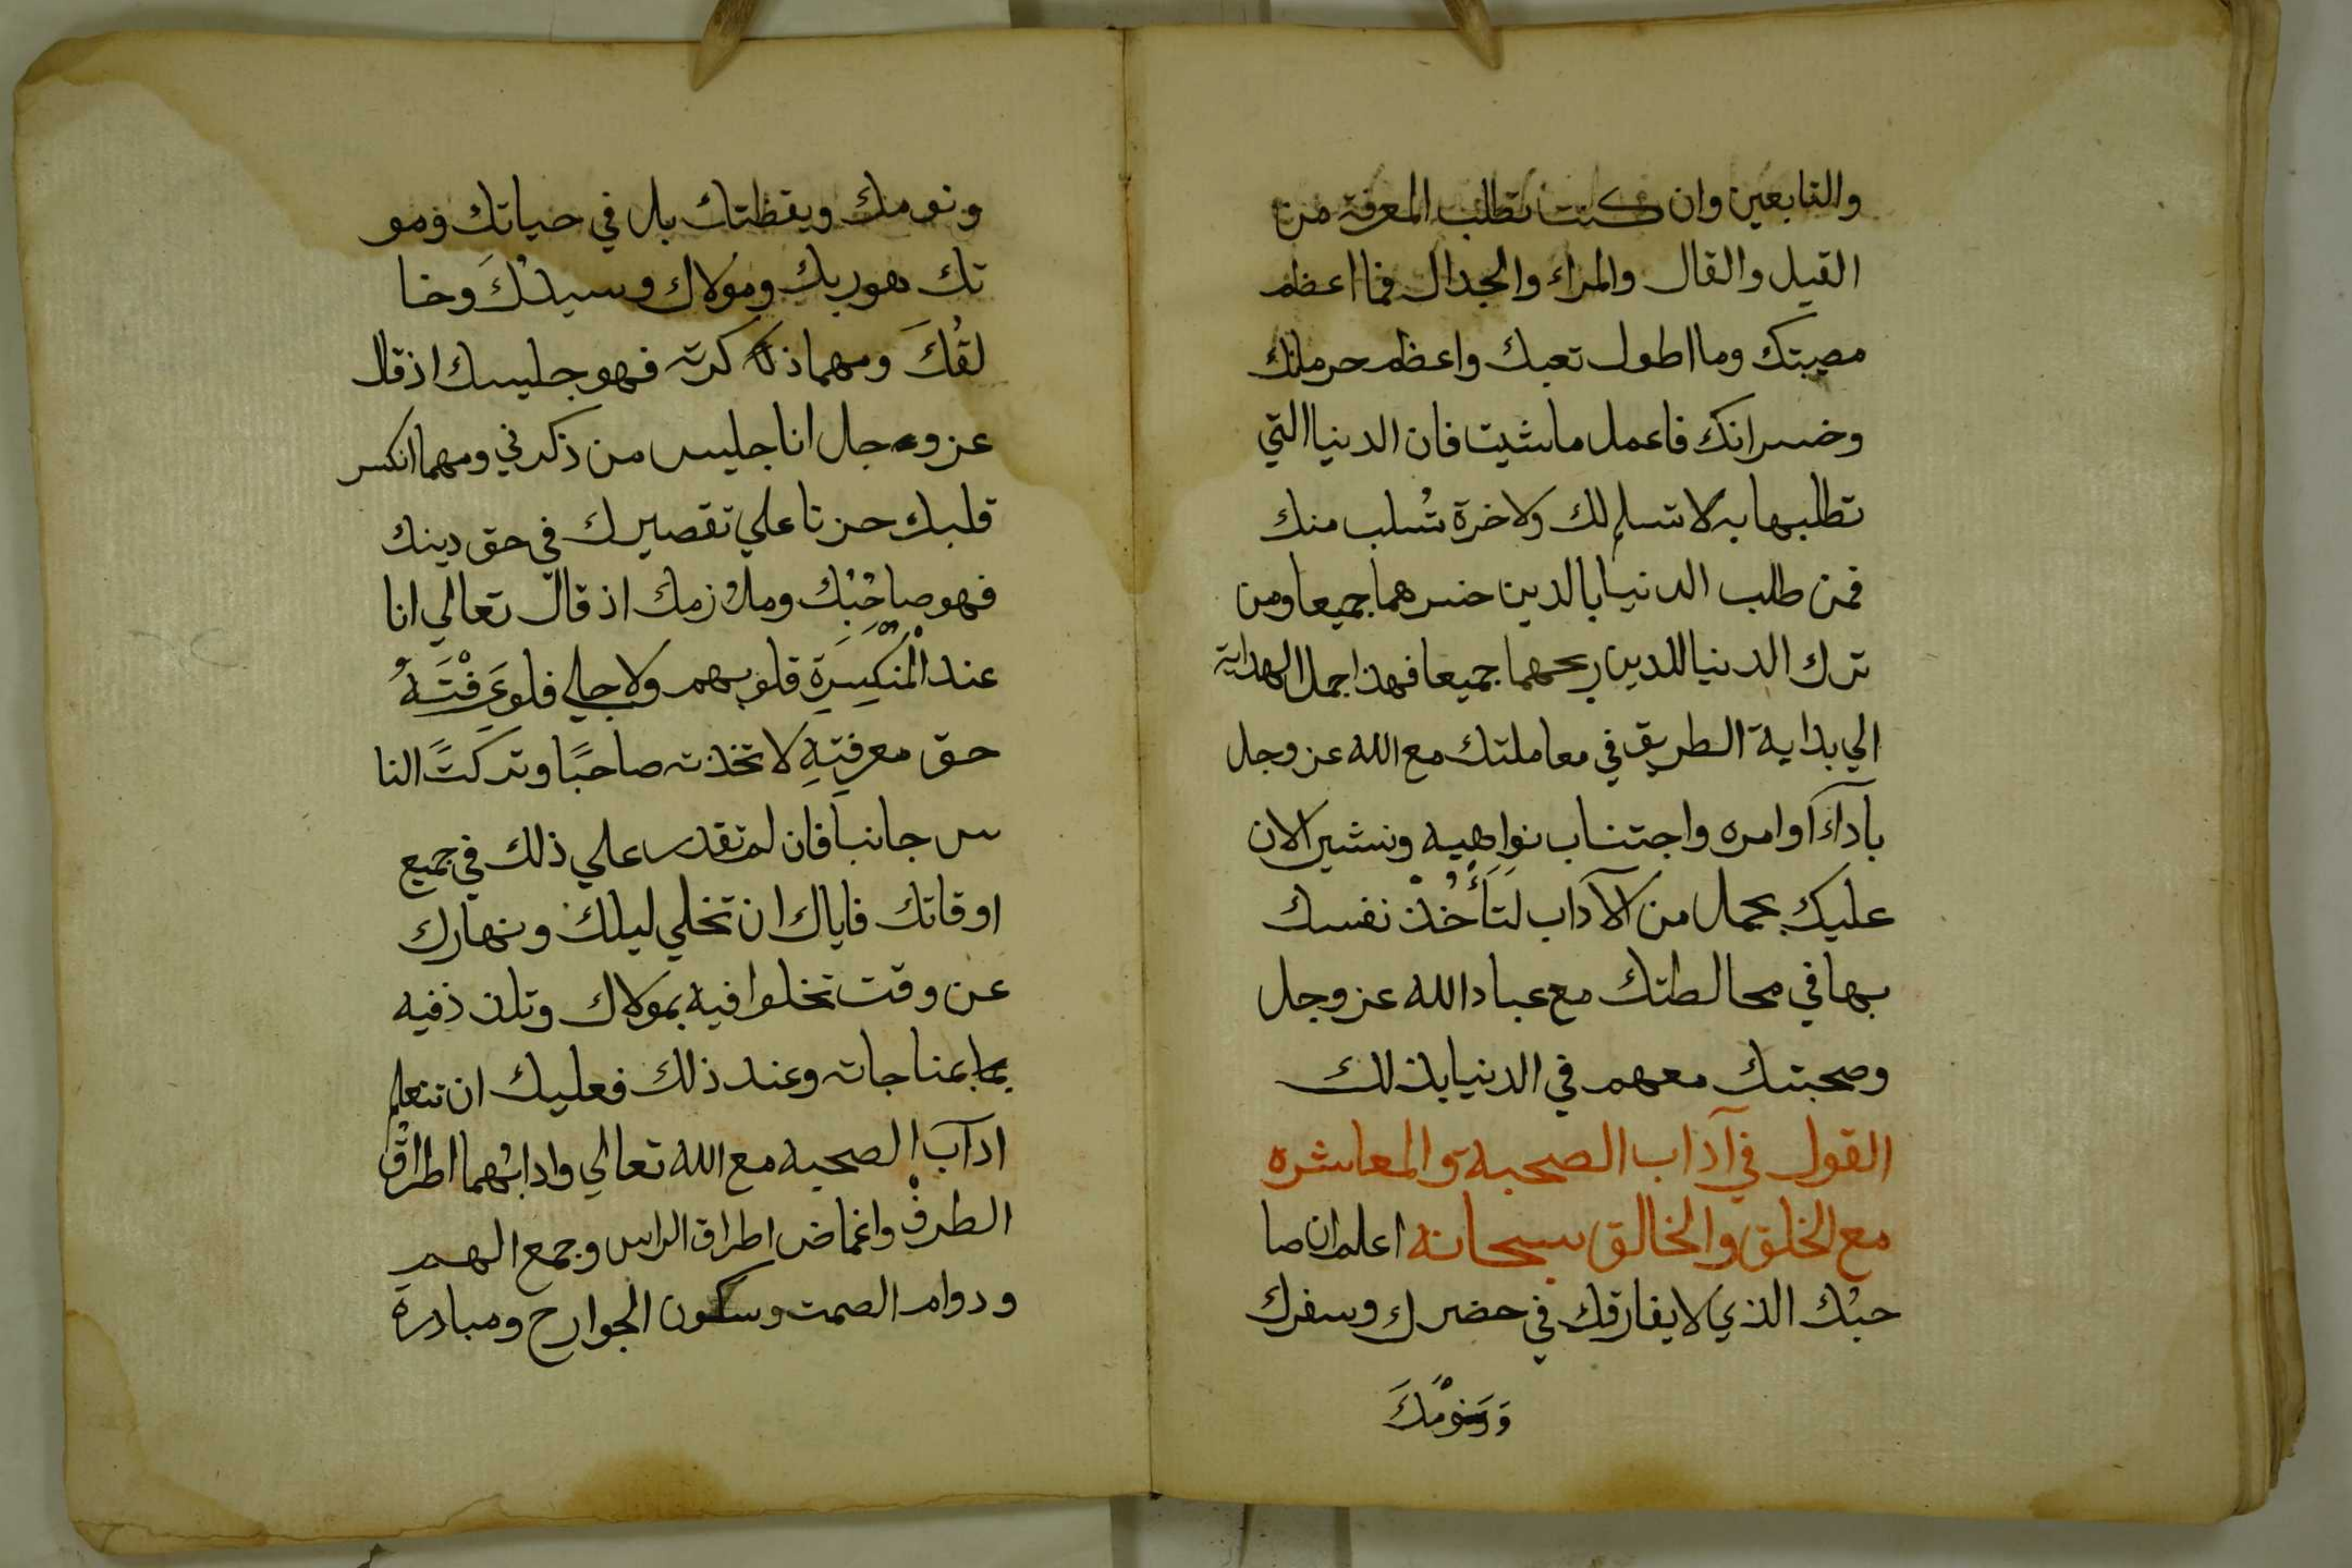 والتابعين وان كنت تطلب المعرفة من
القيل والقال والمراء والجدال فما اعظم
مصيبتك وما اطول تعبك واعظم حرمانك
وخسرانك فاعمل ما شيت فان الدنيا التي
تطلبها به لا تسلم لك ولاخرة تُسلب منك
فمن طلب الدنيا بالدين خسرهما جميعا ومن
ترك الدنيا للدين ربحهما جميعا فهذا جمل الهداية
الي بداية الطريق في معاملتك مع الله عز وجل
بآدآء اوامره واجتناب نواهيه ونشير الان
عليك بجمل من الآداب لتَأْخُذْ نفسك
بها في مخالطتك مع عباد الله عز وجل
وصحبتك معهم في الدنيا بذلك
القول في آداب الصحبة والمعاشره
مع الخلق والخالق سبحانه اعلم ان صا
حبُك الذي لا يفارقك في حضرك وسفرك
ونومْكَ
ونومك ويقظتك بل في حياتك ومو
تك هو ربك ومولاك وسيدُكَ وخا
لقُكَ ومهما ذكرته فهو جليسك اذ قال
عز وجل انا جليس من ذكرني ومهما انكسر
قلبك حزنا علي تقصيرك في حق دينك
فهو صاحُبُك وملازمك اذ قال تعالي انا
عند الْمُنْكَسِرَةِ قلوبهم ولاجلي فلو عَرَفْتَهُ
حق معرفتِهِ لاتخذته صاحبًا وتركتَ النا
س جانبا فان لم تقدر علي ذلك في جميع
اوقاتك فاياك ان تخلي ليلك ونهارك
عن وقت تخلوا فيه بمولاك وتلذذ فيه
بمناجاته وعند ذلك فعليك ان تتعلم
ادآب الصحبه مع الله تعالي وادابهما اطراق
الطرفْ واغماض اطراق الراس وجمع الهم
ودوام الصمت وسكون الجوارح ومبادرة